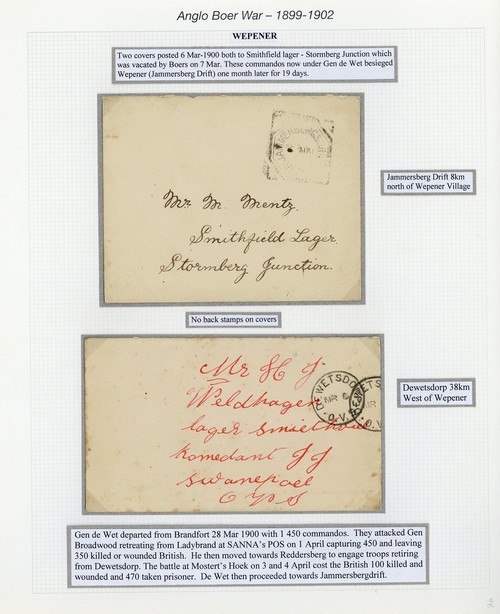 Anglo Boer War – 1899-1902
WEPENER
Two covers posted 6 Mar-1900 both to Smithfield lager - Stormberg Junction which
was vacated by Boers on 7 Mar. These commandos now under Gen de Wet besieged
Wepener (Jammersberg Drift) one month later for 19 days.
Jammersberg Drift 8km
north of Wepener Village
Mr. M. Mentz.
Smithfield Lager.
Stormberg Junction.
No back stamps on covers
Mr H J
Weldhagen
lager
komedant J J
swanepoel
DEWETSDO
MR 6
O.V.
Dewetsdorp 38km
West of Wepener
Gen de Wet departed from Brandfort 28 Mar 1900 with 1 450 commandos. They attacked Gen
Broadwood retreating from Ladybrand at SANNA's POS on 1 April capturing 450 and leaving
350 killed or wounded British. He then moved towards Reddersberg to engage troops retiring
from Dewetsdorp. The battle at Mostert's Hoek on 3 and 4 April cost the British 100 killed and
wounded and 470 taken prisoner. De Wet then proceeded towards Jammersbergdrift.